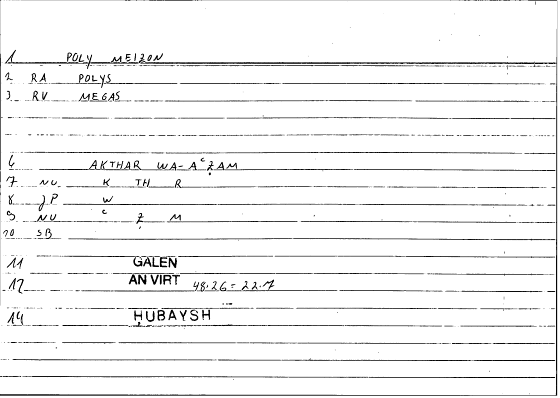 1 POLY MEIZON
2 RA POLYS
3 RV MEGAS
6 AKTHAR WA-AʿẒAM
7 NU K TH R
8 JP W
9 NU ʿ Ẓ M
10 SB
11 GALEN
12 AN VIRT 48.26 = 22.7
14 ḤUBAYSH